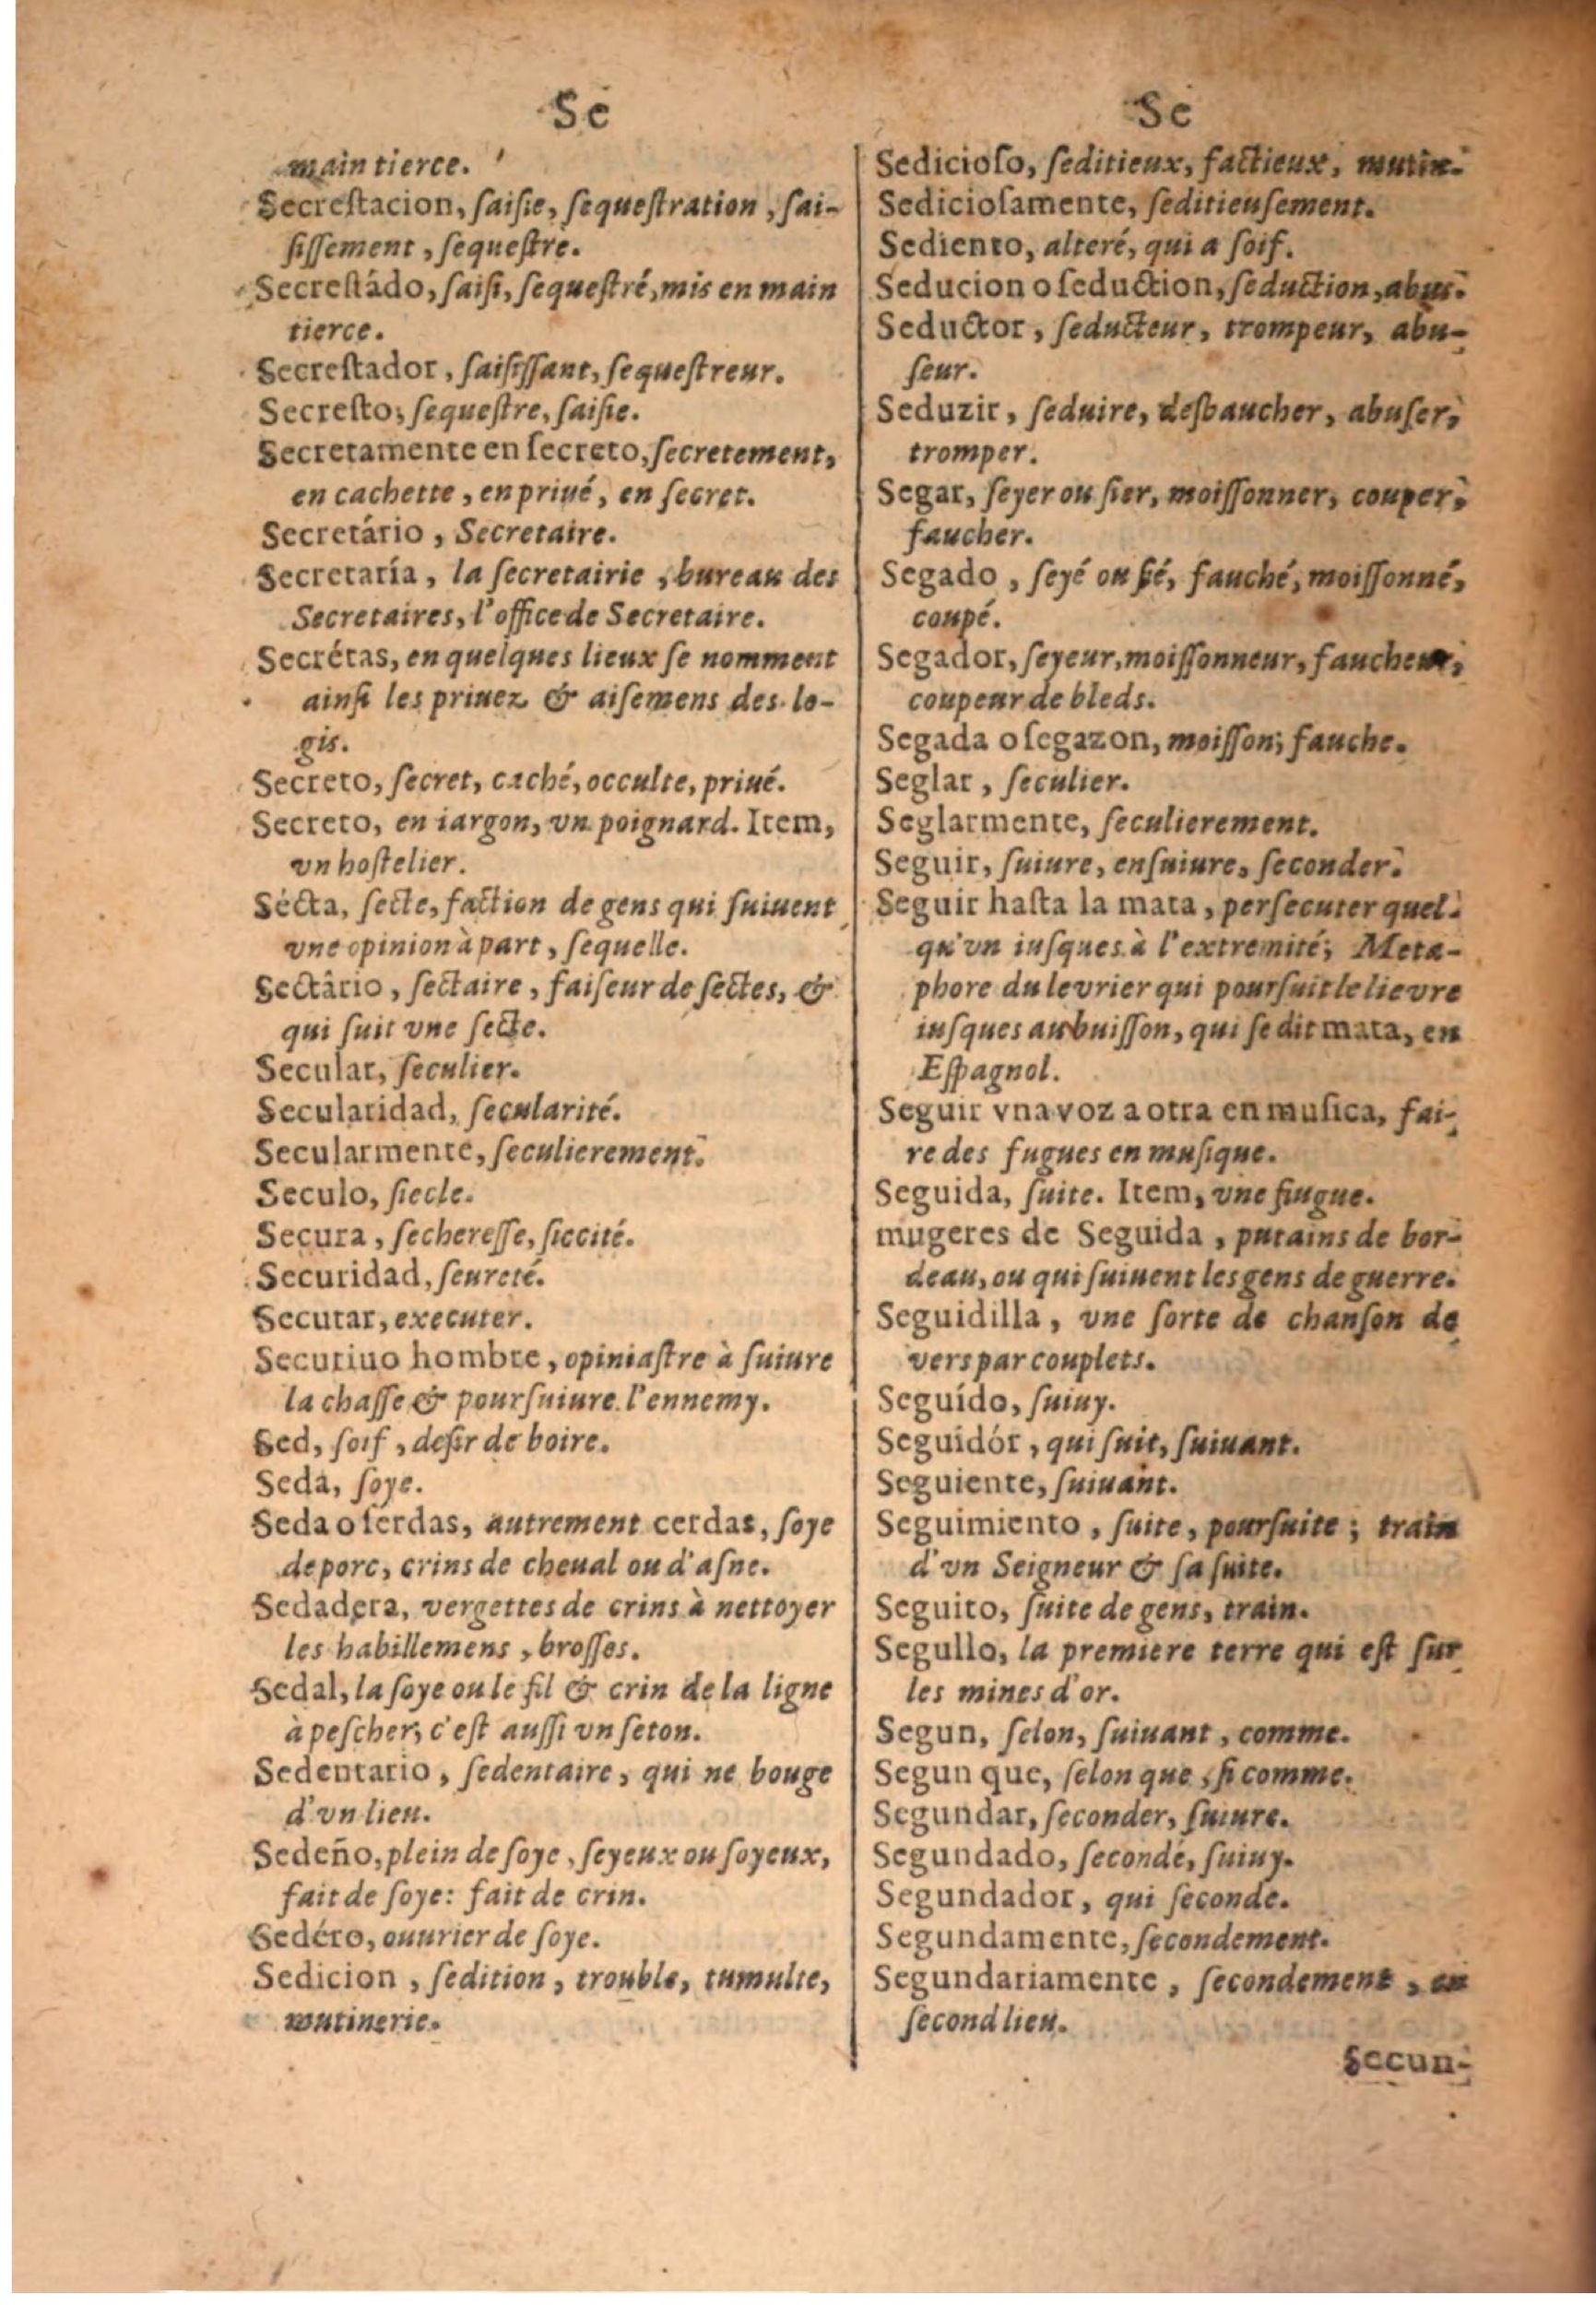 Se
main tierce.
Secreſtacion, ſaiſie, ſequeſtration, ſai-
ſiſſement, ſequeſtre.
Secreſtádo, ſaiſi, ſequeſtré, mis en main
tierce.
Secreſtador, ſaiſiſſant, ſequeſtreur.
Secreſto, ſequeſtre, ſaiſie.
Secretamente en ſecreto, ſecretement,
en cachette, en priué, en ſecret.
Secretário, Secretaire.
Secretaría, la ſecretairie, bureau des
Secretaires, l'office de Secretaire.
Secrétas, en quelques lieux ſe nomment
ainſi les priuez & aiſemens des lo-
gis.
Secreto, ſecret, caché, occulte, priué.
Secreto, en iargon, vn poignard. Item,
vn hoſtelier.
Sécta, ſecte, faction de gens qui ſuiuent
vne opinion à part, ſequelle.
Sectârio, ſectaire, faiſeur de ſectes, &
qui ſuit vne ſecte.
Secular, ſeculier.
Secularidad, ſecularité.
Secularmente, ſeculierement.
Seculo, ſiecle.
Secura, ſechereſſe, ſiccité.
Securidad, ſeureté.
Secutar, executer.
Secutiuo hombre, opiniaſtre à ſuiure
la chaſſe & pourſuiure l'ennemy.
Sed, ſoif, deſir de boire.
Seda, ſoye.
Seda o ſerdas, autrement cerdas, ſoye
de porc, crins de cheual ou d'aſne.
Sedadera, vergettes de crins à nettoyer
les habillemens, broſſes.
Sedal, la ſoye ou le fil & crin de la ligne
à peſcher, c'eſt auſſi vn ſeton.
Sedentario, ſedentaire, qui ne bouge
d'vn lieu.
Sedeño, plein de ſoye, ſeyeux ou ſoyeux,
fait de ſoye: fait de crin.
Sedéro, ouurier de ſoye.
Sedicion, ſedition, trouble, tumulte,
mutinerie.
Se
Sedicioſo, ſeditieux, factieux, mutin.
Sedicioſamente, ſeditieuſement.
Sediento, alteré, qui a ſoif.
Seducion o ſeduction, ſeduction, abus.
Seductor, ſeducteur, trompeur, abu-
ſeur.
Seduzir, ſeduire, desbaucher, abuſer,
tromper.
Segar, ſeyer ou ſier, moiſſonner, couper,
faucher.
Segado, ſeyé ou ſié, fauché, moiſſonné,
coupé.
Segador, ſeyeur, moiſſonneur, faucheur,
coupeur de bleds.
Segada o ſegazon, moiſſon, fauche.
Seglar, ſeculier.
Seglarmente, ſeculierement.
Seguir, ſuiure, enſuiure, ſeconder.
Seguir haſta la mata, perſecuter quel-
qu'vn iuſques à l'extremité; Meta-
phore du levrier qui pourſuit le lievre
iuſques au buiſſon, qui ſe dit mata, en
Eſpagnol.
Seguir vna voz a otra en muſica, fai-
re des fugues en muſique.
Seguida, ſuite. Item, vne fiugue.
mugeres de Seguida, putains de bor-
deau, ou qui ſuiuent les gens de guerre.
Seguidilla, vne ſorte de chanſon de
vers par couplets.
Seguído, ſuiuy.
Seguidór, qui ſuit, ſuiuant.
Seguiente, ſuiuant.
Seguimiento, ſuite, pourſuite; train
d'vn Seigneur & ſa ſuite.
Seguito, ſuite de gens, train.
Segullo, la premiere terre qui eſt ſur
les mines d'or.
Segun, ſelon, ſuiuant, comme.
Segun que, ſelon que, ſi comme.
Segundar, ſeconder, ſuiure.
Segundado, ſecondé, ſuiuy.
Segundador, qui ſeconde.
Segundamente, ſecondement.
Segundariamente, ſecondement, en
ſecond lieu.
Secun-